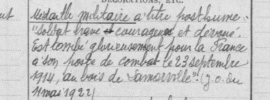 DÉCORATIONS, ETC.
Médaille militaire à titre posthume.
"soldat brave et courageux et dévoué.
Est tombé glorieusement pour la France
à son poste de combat le 23 septembre
1914, au bois de Lamorville" (J.O. du
11 mai 1922)